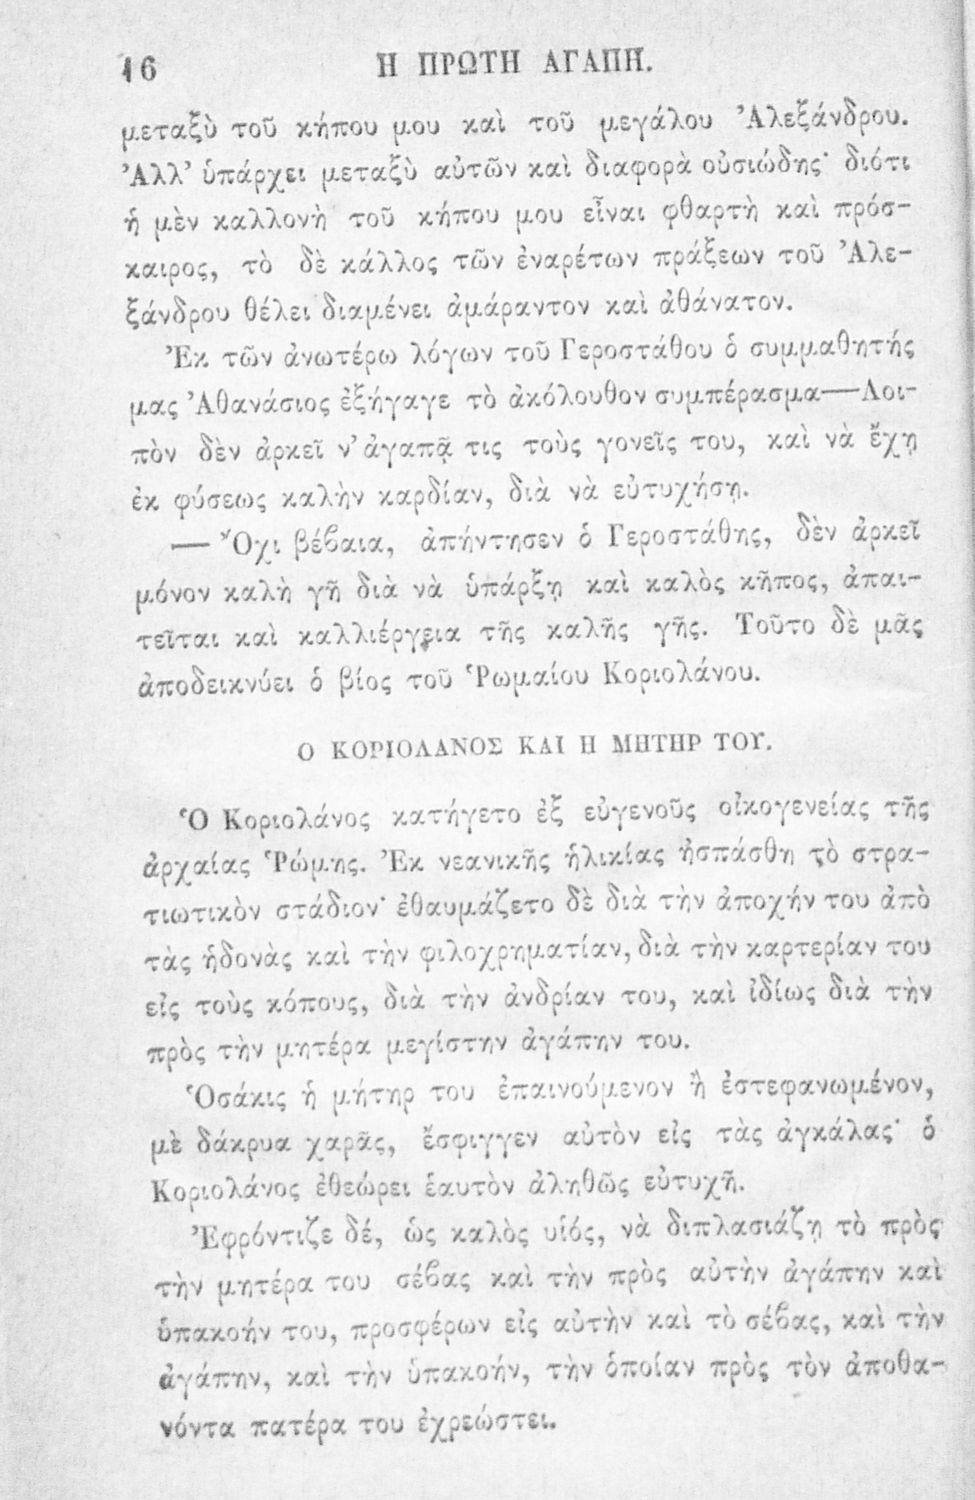 16
Η ΠΡΩΤΗ ΑΓΑΠΗ.
μεταξὺ τοῦ κήπου μου καὶ τοῦ μεγάλου Ἀλεξάνδρου.
Ἀλλ' ὑπάρχει μεταξὺ αὐτῶν καὶ διαφορὰ οὐσιώδης· διότι
ἡ μὲν καλλονὴ τοῦ κήπου μου εἶναι φθαρτὴ καὶ πρόσ-
καιρος, τὸ δὲ κάλλος τῶν ἐναρέτων πράξεων τοῦ Ἀλε-
ξάνδρου θέλει διαμένει ἀμάραντον καὶ ἀθάνατον.
Ἐκ τῶν ἀνωτέρω λόγων τοῦ Γεροστάθου ὁ συμμαθητής
μας Ἀθανάσιος ἐξήγαγε τὸ ἀκόλουθον συμπέρασμα—Λοι-
πὸν δὲν ἀρκεῖ ν' ἀγαπᾷ τις τοὺς γονεῖς του, καὶ νὰ ἔχῃ
ἐκ φύσεως καλὴν καρδίαν, διὰ νὰ εὐτυχήσῃ.
— Ὄχι βέβαια, ἀπήντησεν ὁ Γεροστάθης, δὲν ἀρκεῖ
μόνον καλὴ γῆ διὰ νὰ ὑπάρξῃ καὶ καλὸς κῆπος, ἀπαι-
τεῖται καὶ καλλιέργεια τῆς καλῆς γῆς. Τοῦτο δὲ μᾶς
ἀποδεικνύει ὁ βίος τοῦ Ῥωμαίου Κοριολάνου.
Ο ΚΟΡΙΟΛΑΝΟΣ ΚΑΙ Η ΜΗΤΗΡ ΤΟΥ.
Ὁ Κοριολάνος κατήγετο ἐξ εὐγενοῦς οἰκογενείας τῆς
ἀρχαίας Ῥώμης. Ἐκ νεανικῆς ἡλικίας ἠσπάσθη τὸ στρα-
τιωτικὸν στάδιον· ἐθαυμάζετο δὲ διὰ τὴν ἀποχήν του ἀπὸ
τὰς ἡδονὰς καὶ τὴν φιλοχρηματίαν, διὰ τὴν καρτερίαν του
εἰς τοὺς κόπους, διὰ τὴν ἀνδρίαν του, καὶ ἰδίως διὰ τὴν
πρὸς τὴν μητέρα μεγίστην ἀγάπην του.
Ὁσάκις ἡ μήτηρ του ἐπαινούμενον ἢ ἐστεφανωμένον,
μὲ δάκρυα χαρᾶς, ἔσφιγγεν αὐτὸν εἰς τὰς ἀγκάλας· ὁ
Κοριολάνος ἐθεώρει ἑαυτὸν ἀληθῶς εὐτυχῆ.
Ἐφρόντιζε δέ, ὡς καλὸς υἱός, νὰ διπλασιάζῃ τὸ πρὸς
τὴν μητέρα του σέβας καὶ τὴν πρὸς αὐτὴν ἀγάπην καὶ
ὑπακοήν του, προσφέρων εἰς αὐτὴν καὶ τὸ σέβας, καὶ τὴν
ἀγάπην, καὶ τὴν ὑπακοήν, τὴν ὁποίαν πρὸς τὸν ἀποθα-
νόντα πατέρα του ἐχρεώστει.